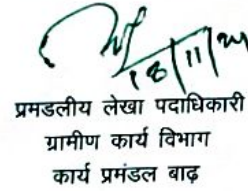 18/11/24
प्रमडलीय लेखा पदाधिकारी
ग्रामीण कार्य विभाग
कार्य प्रमंडल बाढ़